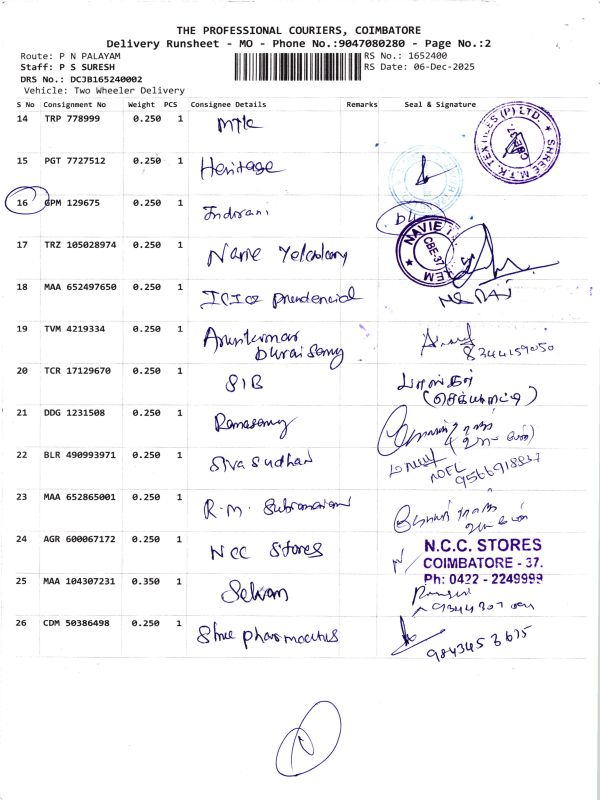 THE PROFESSIONAL COURIERS, COIMBATORE
Delivery Runsheet - MO - Phone No.:9047080280 - Page No.:2
Route: P N PALAYAM RS No.: 1652400
Staff: P S SURESH RS Date: 06-Dec-2025
DRS No.: DCJB165240002
Vehicle: Two Wheeler Delivery
S No Consignment No Weight PCS Consignee Details Remarks Seal & Signature
14 TRP 778999 0.250 1 MTK SHREE M.T.K. TEXTILES (P) LTD. CBE-37
15 PGT 7727512 0.250 1 Heritage
16 GPM 129675 0.250 1 Indorani
17 TRZ 105028974 0.250 1 Navie NAVIE CBE-37
18 MAA 652497650 0.250 1 ICICI prudencial
19 TVM 4219334 0.250 1 Arunkumar Duraisamy 8344159050
20 TCR 17129670 0.250 1 SIB
21 DDG 1231508 0.250 1 Ramasamy
22 BLR 490993971 0.250 1 Siva Sudhan NOEL
23 MAA 652865001 0.250 1 R.M. Subramaniam
24 AGR 600067172 0.250 1 NCC Stores N.C.C. STORES
COIMBATORE - 37.
Ph: 0422 - 2249999
25 MAA 104307231 0.350 1 Selvam
26 CDM 50386498 0.250 1 Shree pharmacutus 9843453675